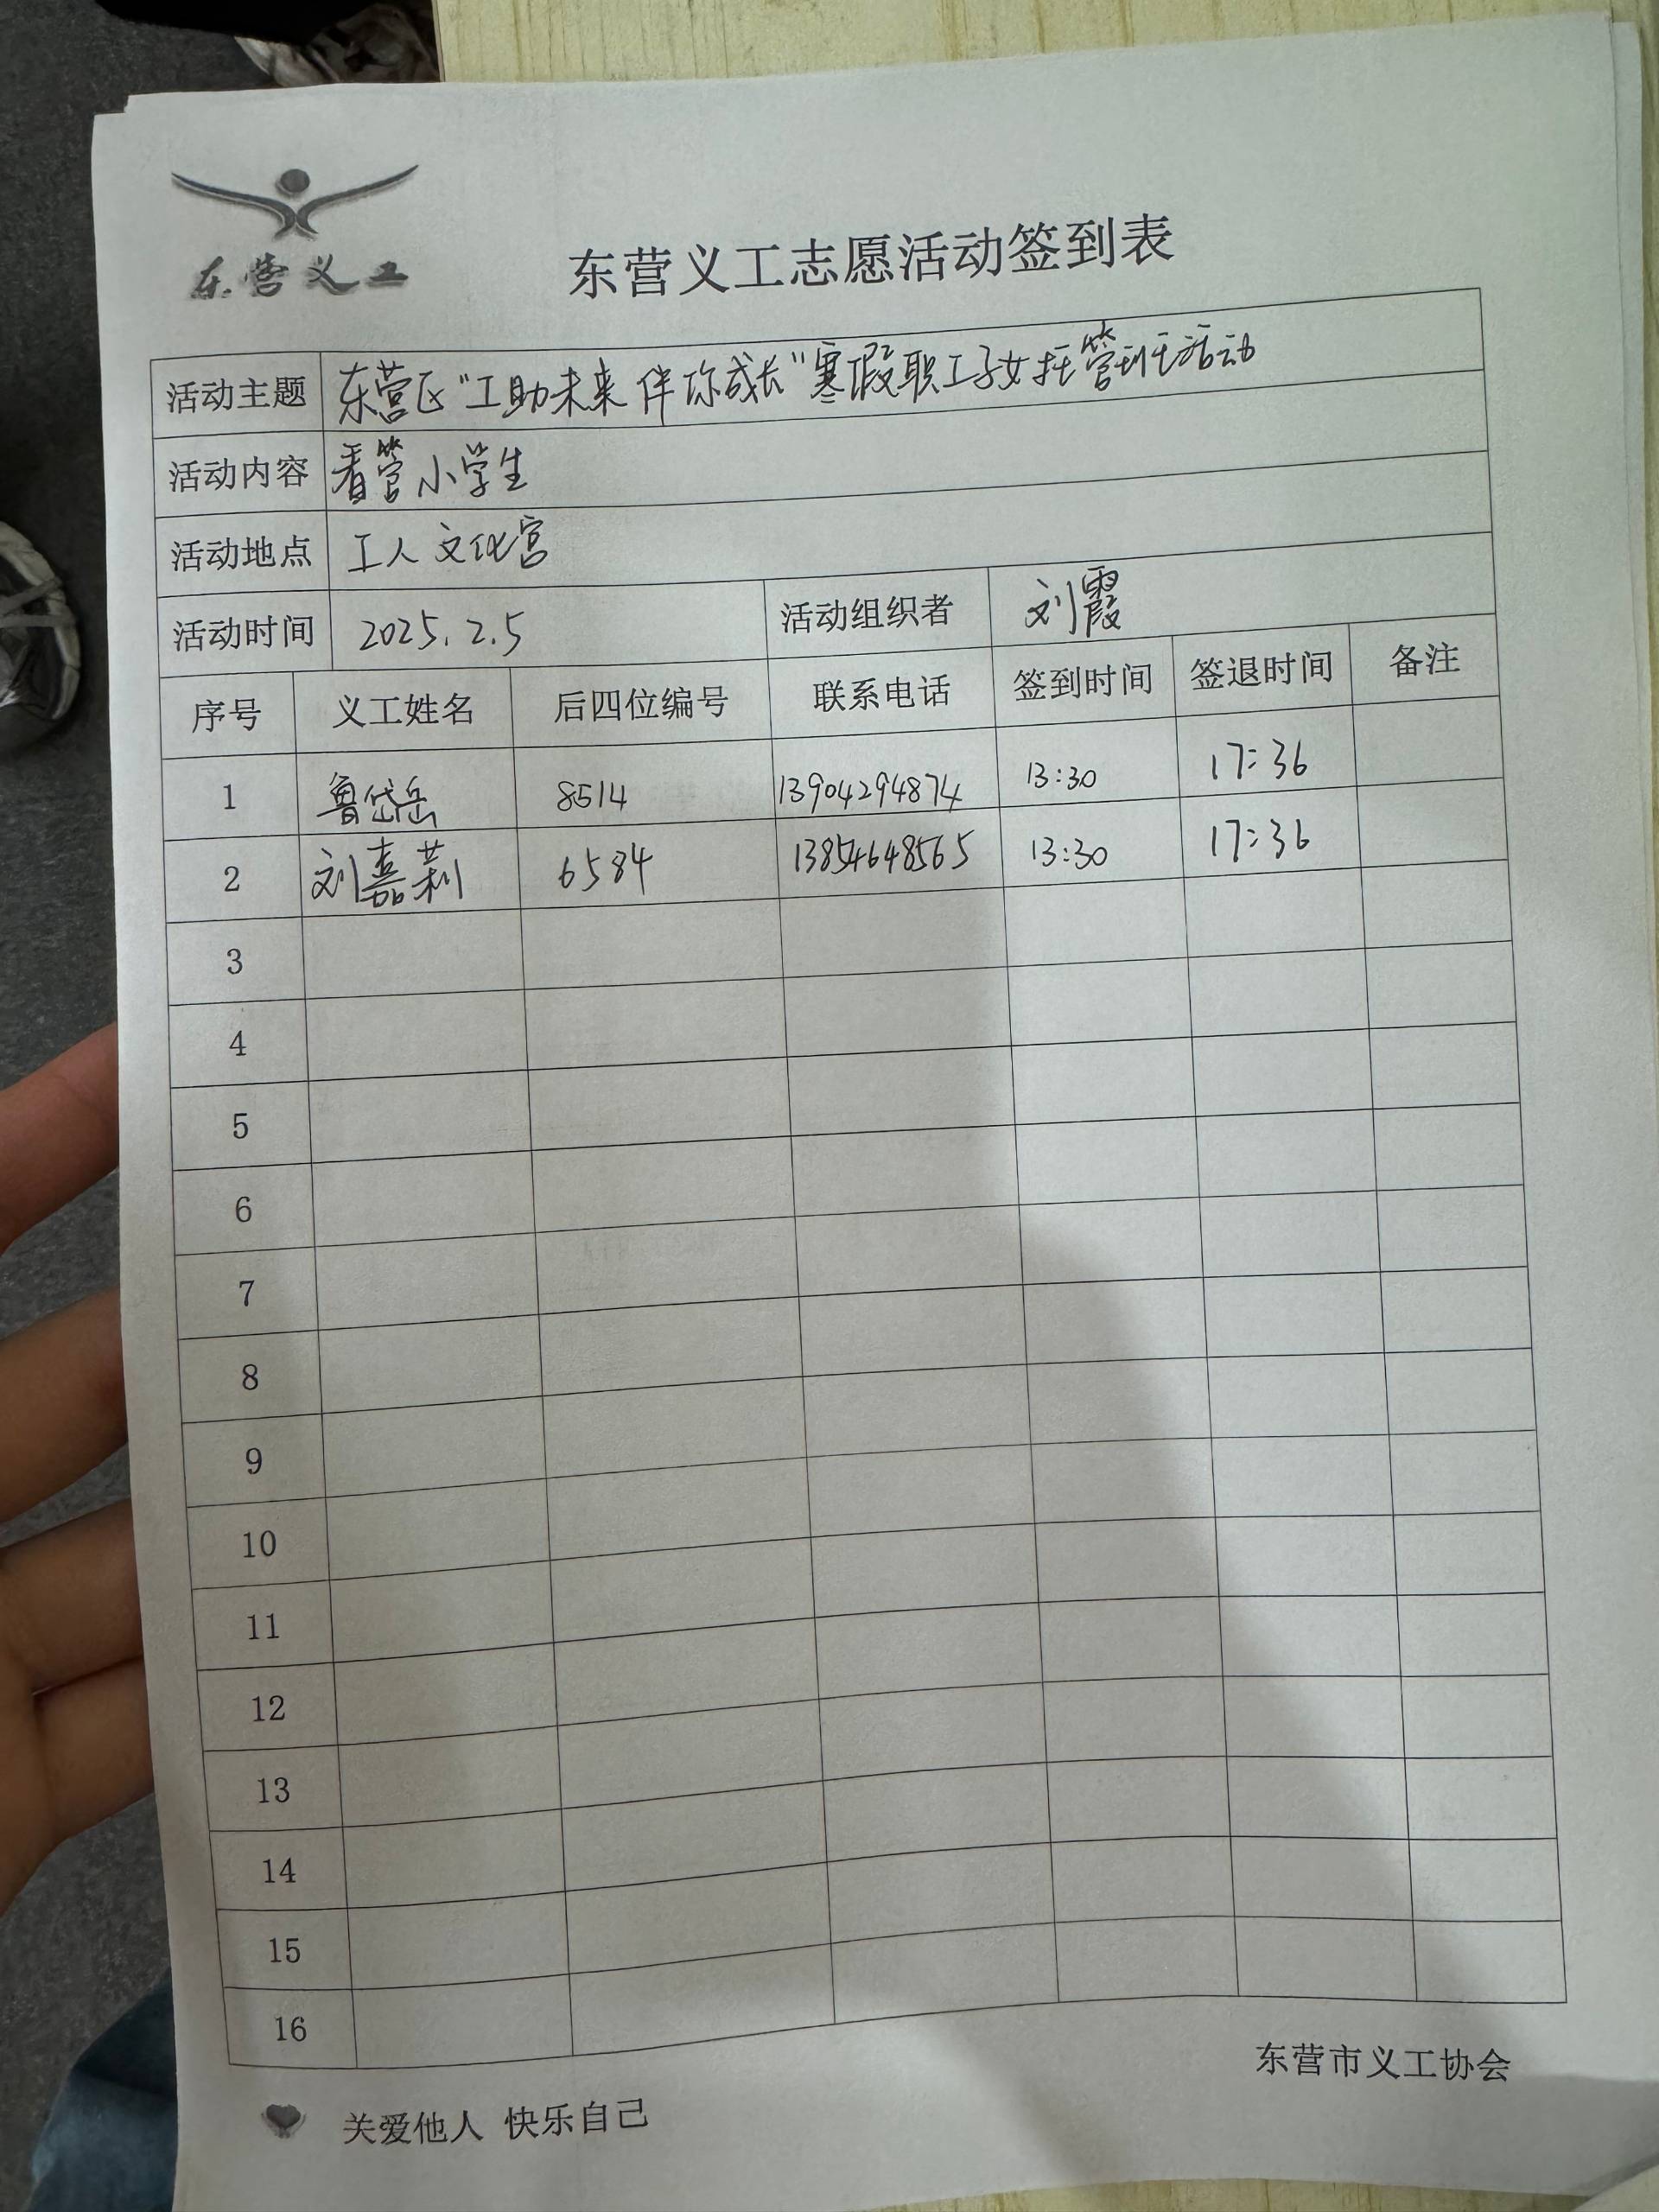 东营义工
东营义工志愿活动签到表
活动主题 东营区“工助未来 伴你成长”寒假职工子女托管班活动
活动内容 看管小学生
活动地点 工人文化宫
活动时间 2025.2.5 活动组织者 刘霞
序号 义工姓名 后四位编号 联系电话 签到时间 签退时间 备注
1 鲁岱岳 8514 13904294874 13:30 17:36
2 刘嘉莉 6584 13854648565 13:30 17:36
3
4
5
6
7
8
9
10
11
12
13
14
15
16
东营市义工协会
关爱他人 快乐自己